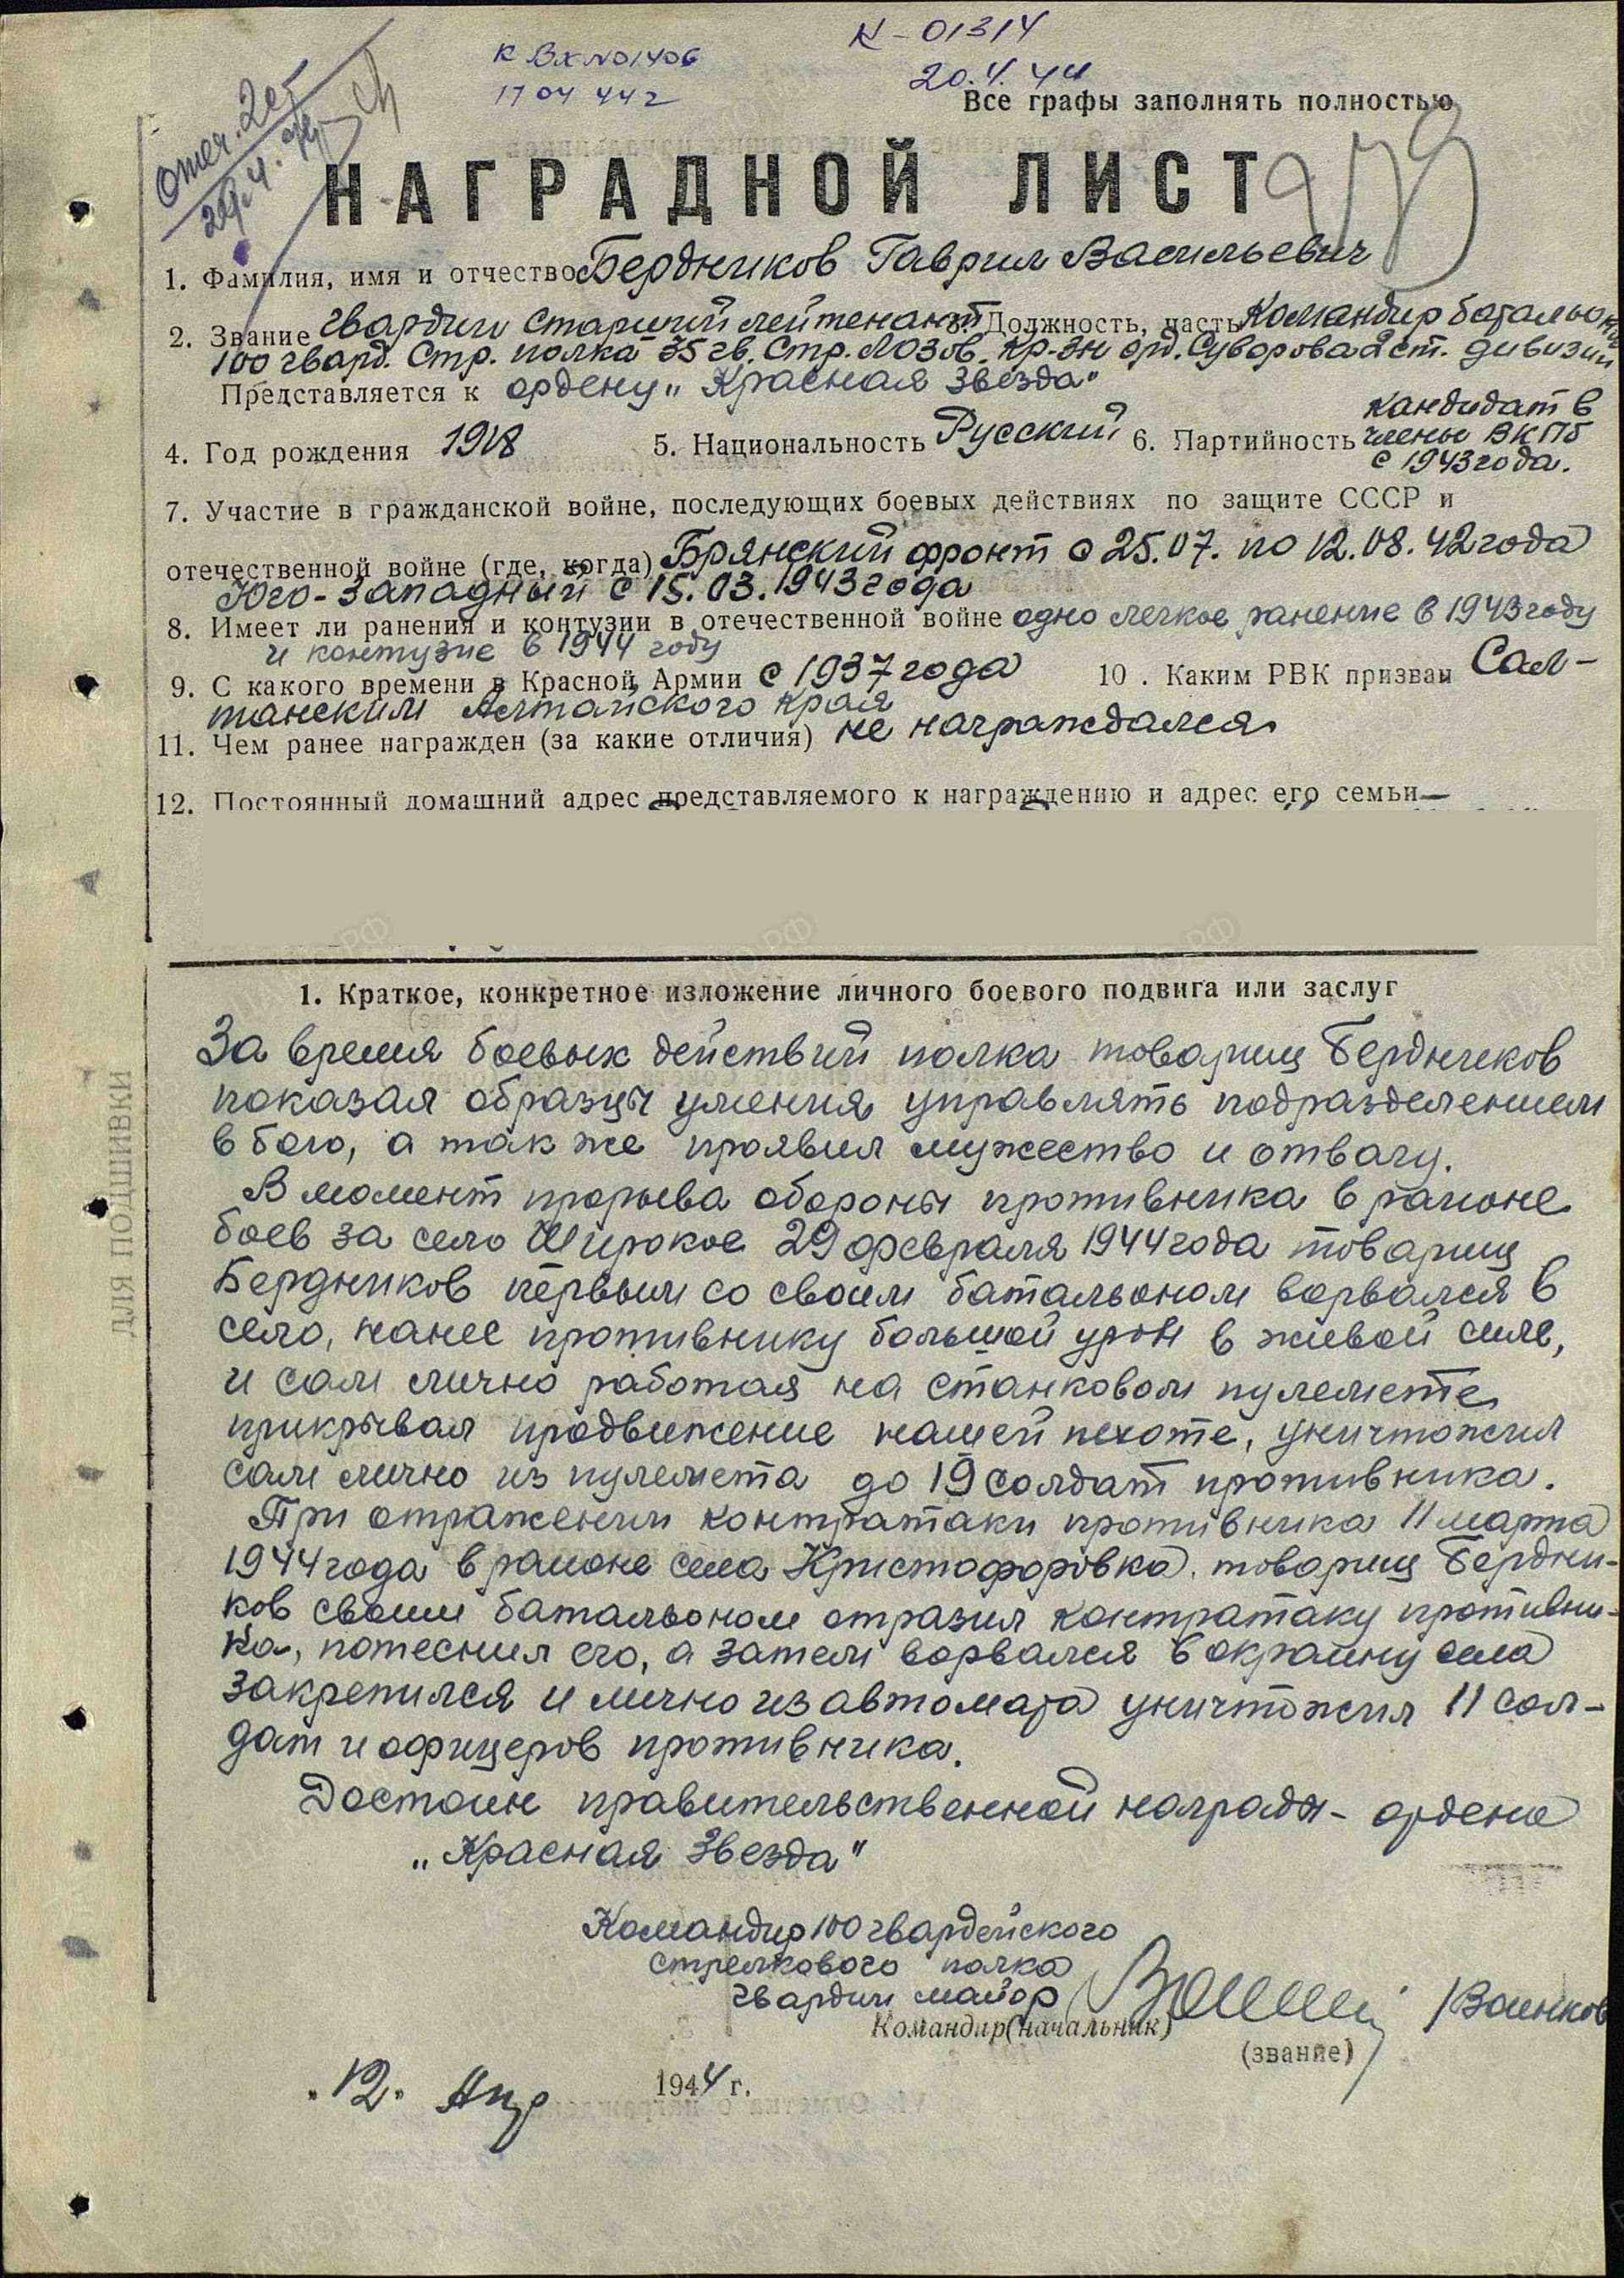 К-01314
К Вх №01406
20.4.44
17 04 44 г
Все графы заполнять полностью
Отеч. 2 ст
29.4.44
НАГРАДНОЙ ЛИСТ
1. Фамилия, имя и отчество Бердников Гаврил Васильевич
2. Звание гвардии старший лейтенант 3. Должность, часть Командир баталиона
100 гвард. Стр. полка 35 гв. Стр. Лозов. Кр-Зн орд. Суворова 2 ст. дивизии
Представляется к ордену „Красная Звезда"
4. Год рождения 1918 5. Национальность Русский 6. Партийность кандидат в
члены ВКПб
с 1943 года.
7. Участие в гражданской войне, последующих боевых действиях по защите СССР и
отечественной войне (где, когда) Брянский фронт с 25.07. по 12.08.42 года
Юго-Западный с 15.03.1943 года
8. Имеет ли ранения и контузии в отечественной войне одно легкое ранение в 1943 году
и контузие в 1944 году
9. С какого времени в Красной Армии с 1937 года 10. Каким РВК призван Сал-
танским Алтайского края
11. Чем ранее награжден (за какие отличия) не награждался
12. Постоянный домашний адрес представляемого к награждению и адрес его семьи—
1. Краткое, конкретное изложение личного боевого подвига или заслуг
За время боевых действий полка товарищ Бердников
показал образцы умения управлять подразделением
в бою, а так же проявил мужество и отвагу.
В момент прорыва обороны противника в районе
боев за село Широкое 29 февраля 1944 года товарищ
Бердников первым со своим батальоном ворвался в
село, нанес противнику большой урон в живой силе,
и сам лично работая на станковом пулемете
прикрывал продвижение нашей пехоте, уничтожил
сам лично из пулемета до 19 солдат противника.
При отражении контратаки противника 11 марта
1944 года в районе села Христофоровка. товарищ Бердни-
ков своим батальоном отразил контратаку противни-
ка, потеснил его, а затем ворвался в окраину села
закрепился и лично из автомата уничтожил 11 сол-
дат и офицеров противника.
Достоин правительственной награды - ордена
„Красная Звезда"
Командир 100 гвардейского
стрелкового полка
гвардии майор /Воинков
Командир (начальник)
(звание)
„12" Апр 1944 г.
ДЛЯ ПОДШИВКИ